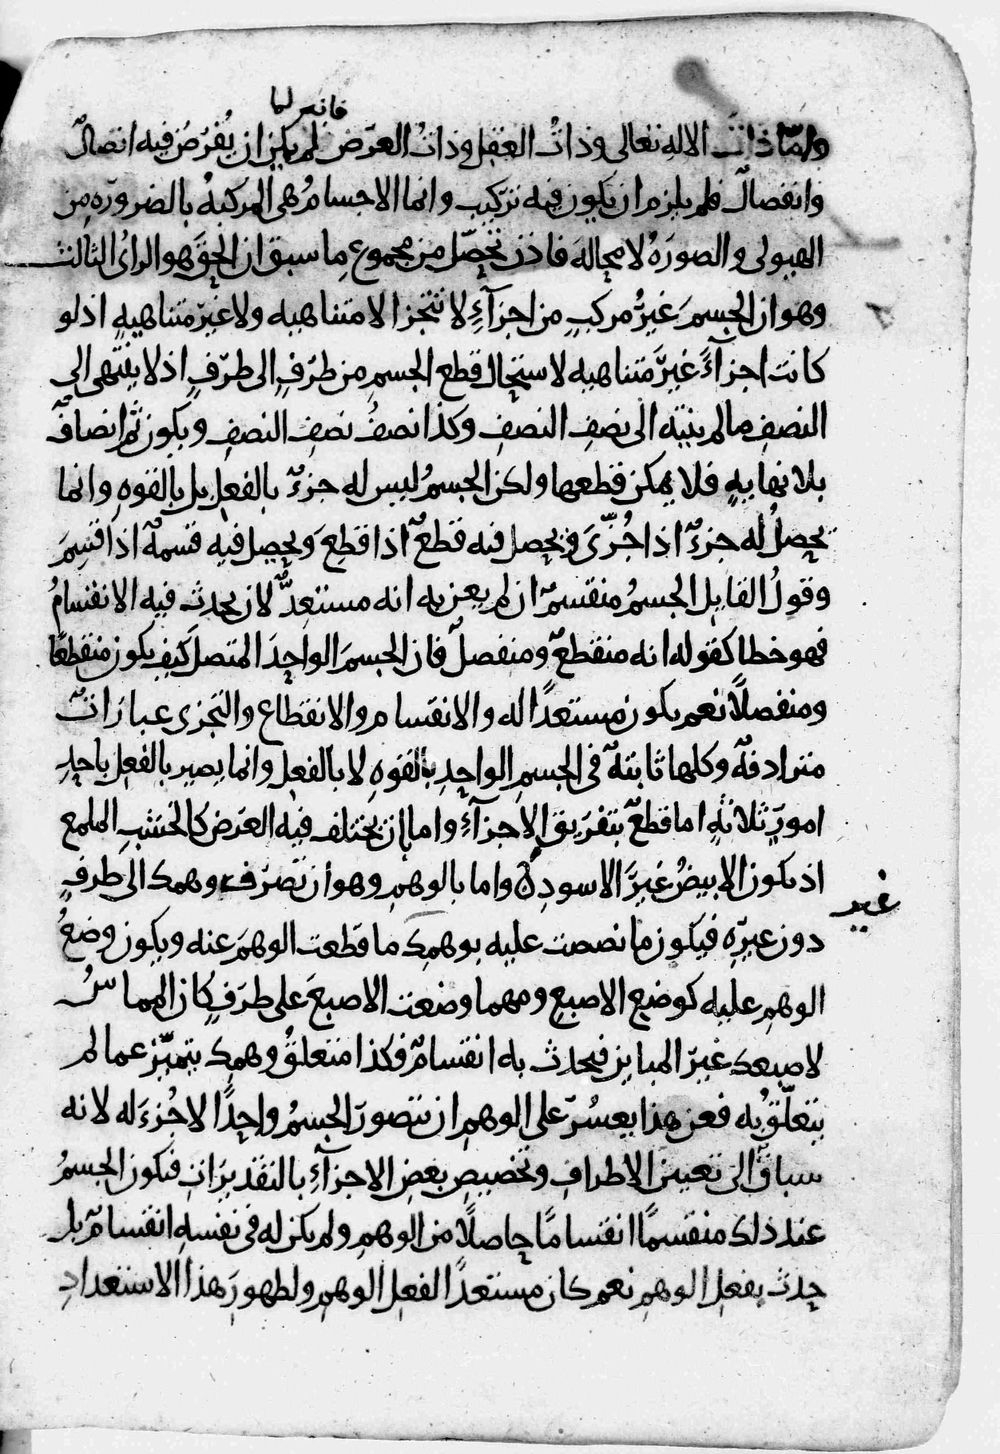 فانه لما
واما ذات الاله تعالى وذات العقل وذات العرض لم يكن ان يُفرَضَ فيه اتصالٌ
وانفصالٌ فلم يلزم ان يكون فيه تركيب وانما الاجسامُ هى المركبهُ بالضروره من
الهيولى والصورَهُ لا محالهَ فاذن تحصّل من مجموع ما سبق ان الحق هو الراىُ الثالث
وهو ان الجسمَ غيرُ مركبٍ من اجزآءٍ لا تتجزا لا متناهيه ولا غيرَ متناهيهٍ اذ لو
كانت اجزآءً غيرَ متناهيه لاستحال قطع الجسم من طرَفٍ الى طرَفٍ اذ لا ينتهى الى
النصفِ ما لم ينته الى نصفِ النصفِ وكذا نصفُ نصفِ النصفِ ويكون ثم انصافٌ
بلا نهايهٍ فلا يمكن قطعها ولكن الجسمُ ليس له جزءٌ بالفعل بل بالقوهِ وانما
يحصلُ له جزءٌ اذا جُزّىَ ويحصل فيه قطعٌ اذا قطِعَ ويحصل فيه قسمهٌ اذا قسِمَ
وقولُ القايل الجسمُ منقسمٌ ان لم يعن به انه مستعدٌّ لان يحدث فيه الانقسامُ
فهو خطا كقوله انه منقطعٌ ومنفصلٌ فان الجسمَ الواحِدَ المتصلَ كيف يكون منقطعًا
ومنفصلاً نعم يكون مستعدًا له والانقسام والانقطاع والتجزى عباراتٌ
مترادفهٌ وكلها ثابتهٌ فى الجسم الواحدِ بالقوهِ لا بالفعلِ وانما يصير بالفعل باحدِ
امورٍ ثلاثهٍ اما قطعٌ بتفريق الاجزآءِ واما بان يختلف فيه العرَض كالخشبِ الملمع
اذ يكون الابيضُ غيرَ الاسودِ واما بالوهم وهو ان تصرّف وهمك الى طرفٍ
غير
دون غيرِه فيكون ما نصصت عليه بوهمك ما قطعت الوهمَ عنه ويكون وضعُ
الوهمِ عليه كوضع الاصبع ومهما وضعت الاصبعَ على طرَفٍ كان المماسُ
لاصبعك غيرَ المباين فيحدث به انقسامٌ فكذا متعلقُ وهمك يتميّز عما لم
يتعلّق به فعن هذا يعسُر على الوهم ان يتصورَ الجسمُ واحِدًا لا جُزءَ له لانه
سباقٌ الى تعيين الاطرافِ وتخصيصِ بعض الاجزآءِ بالتقديراتِ فيكون الجسمُ
عند ذلك منقسمًا انقسامًا حاصلًا من الوهمِ ولم يكن له فى نفسهِ انقسامٌ بل
حدث بفعل الوهمِ نعم كان مستعدًا لفعل الوهم ولظهورَ هذا الاستعدادِ